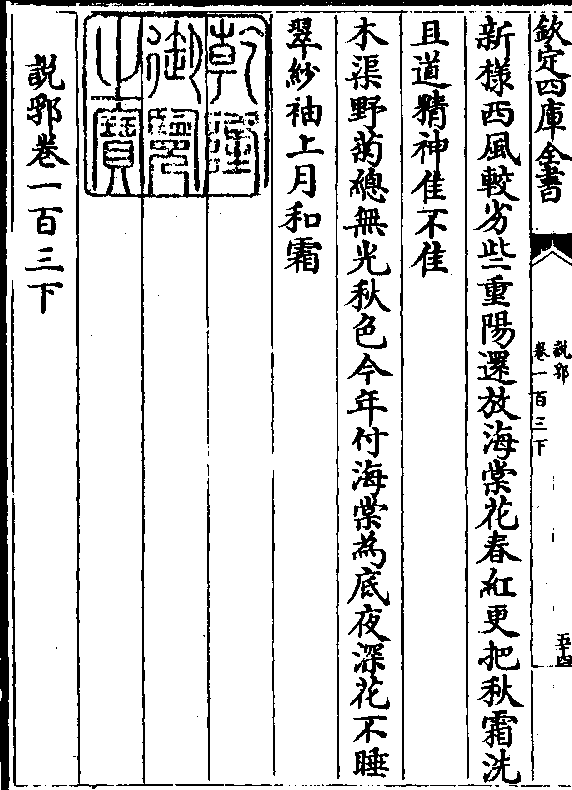 欽定四庫全書
說郛
卷一百三下
五十四
新樣西風較劣些重陽還放海棠花春紅更把秋霜洗
且道精神佳不佳
木渠野菊總無光秋色今年付海棠為底夜深花不睡
翠紗袖上月和霜
乾隆
御覽
之寶
說郛卷一百三下